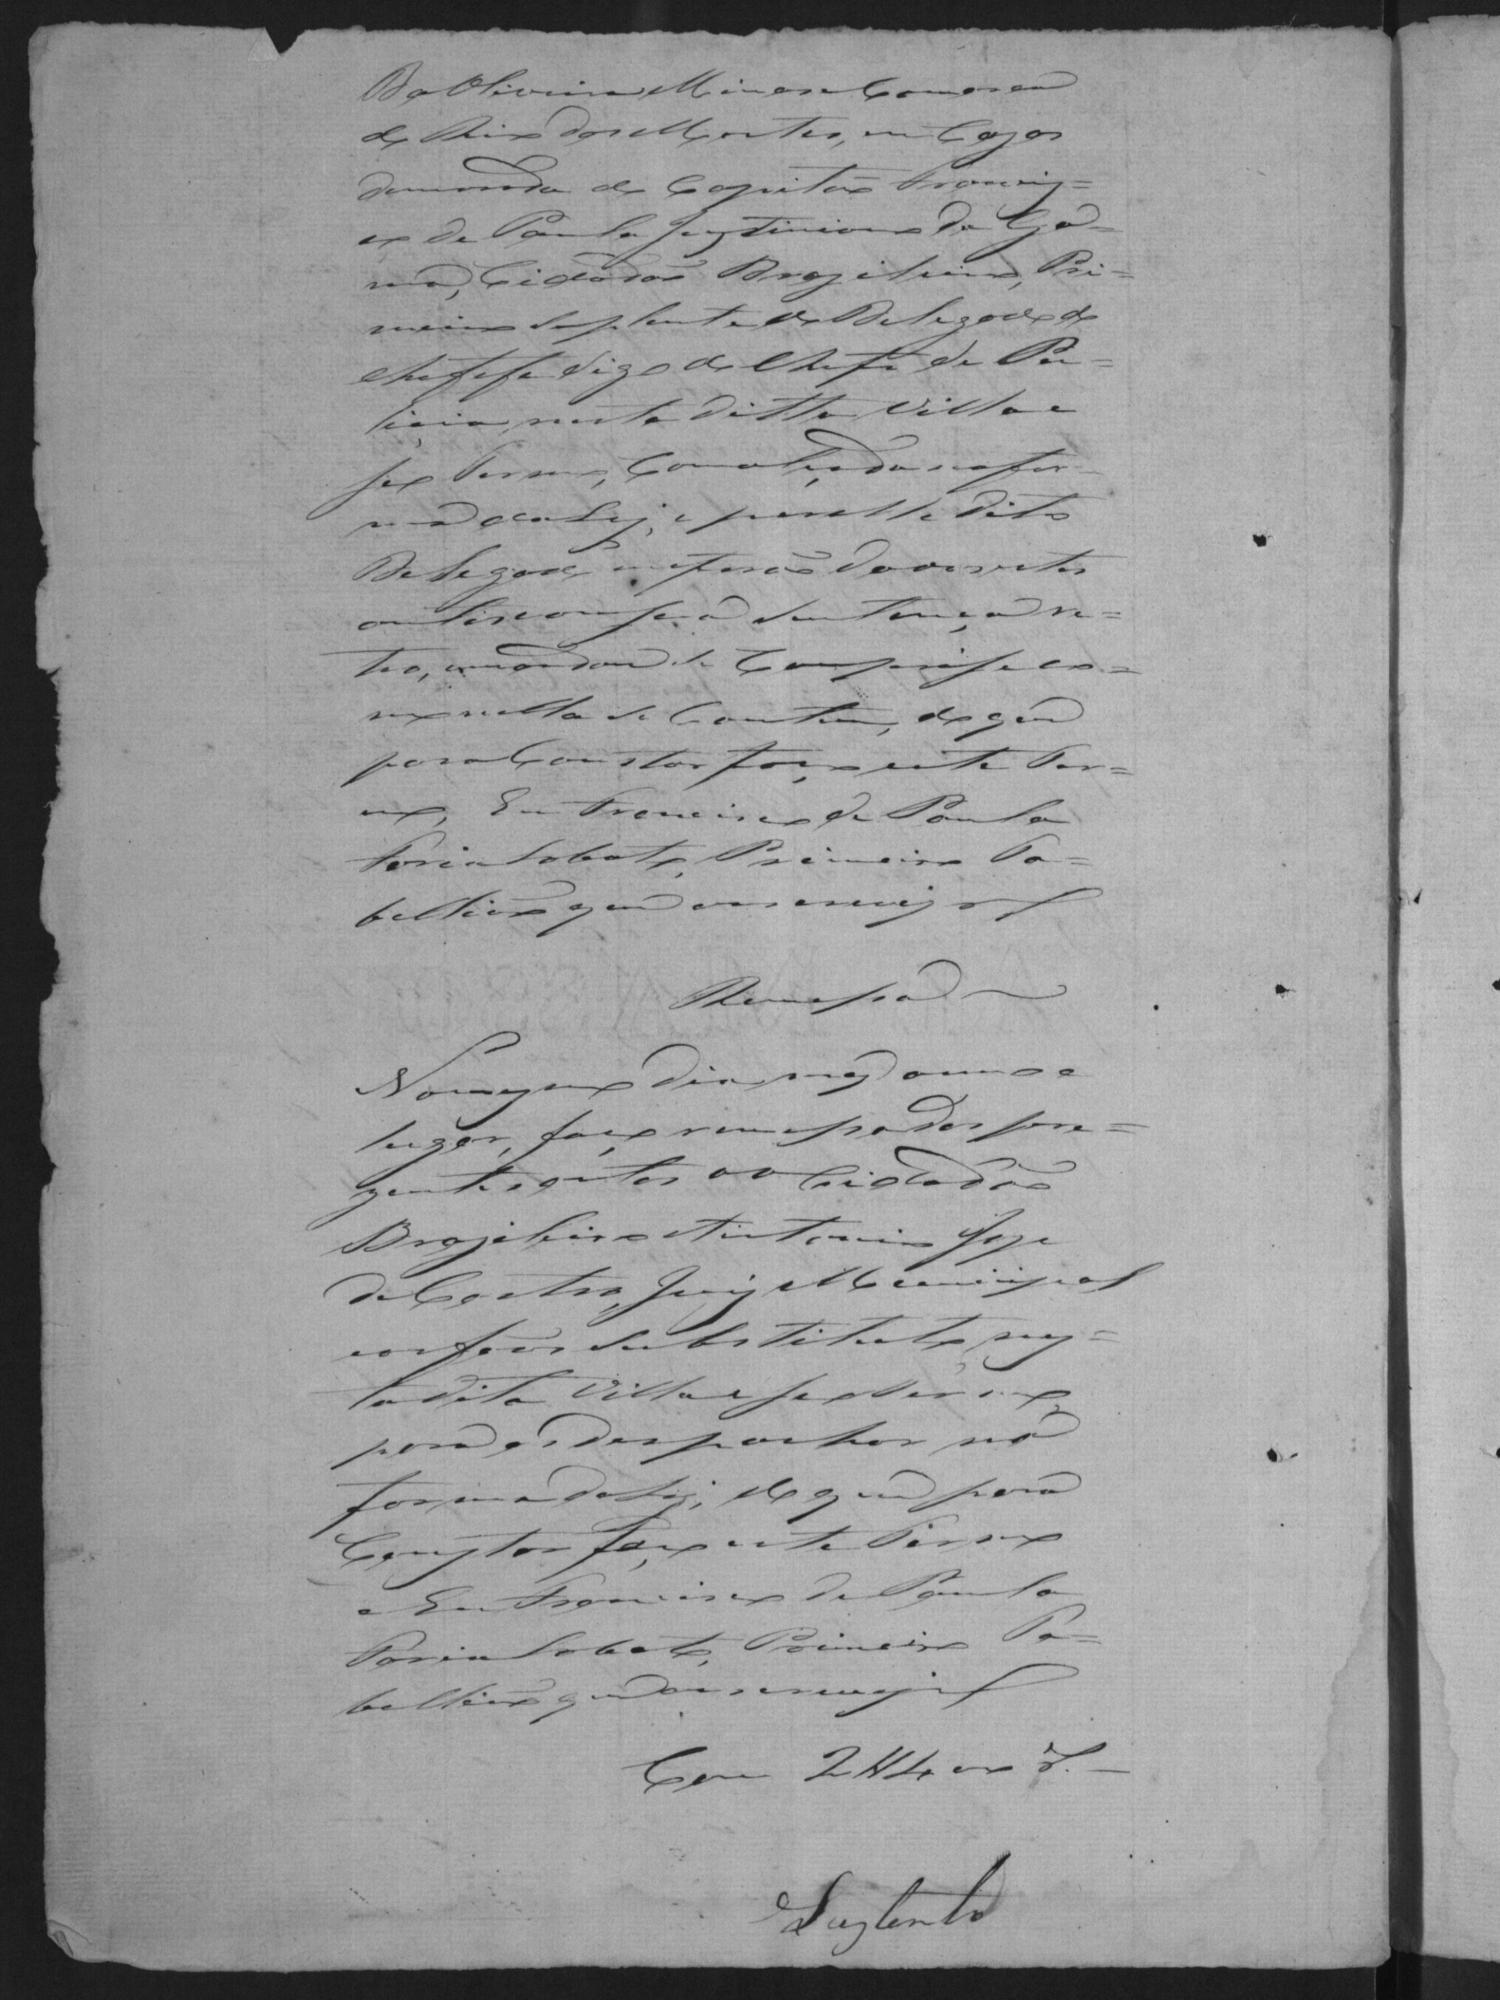 da Oliveira Minas e Comarca
do Rio das Mortes, em Cazas
de morada do Capitão Francis=
co de Paula Justiniano da Ga=
ma, Cidadão Brazileiro, Pri=
meiro Suplente do Delegado do
chefefe digo do Chefe de Po=
licia nesta ditta Villa e
seo Termo, Comolçada na for
ma da Lei, e por elle dito
Delegado me forão dados estes
autos com sua Sentença re=
tro, mandou se Cumprisse co=
mo nella se Contem, do que
para Constar faço este Ter=
mo, Eu Francisco de Paula
Faria Lobato, Primeiro Ta=
bellião que o escrevy
Remessa
No mesmo dia mez anno e
lugar, faço remessa dos pre=
zentes autos ao Cidadão
Brazileiro Antonio Joze
de Castro, Juiz Municipal
Substituto nes=
ta dita Villa e seo Termo
para os despachar na
forma da Lei, do que para
Constar faço este Termo
e Eu Francisco de Paula
Faria Lobato, Primeiro Ta=
bellião que o escrevy
Com
Sustento